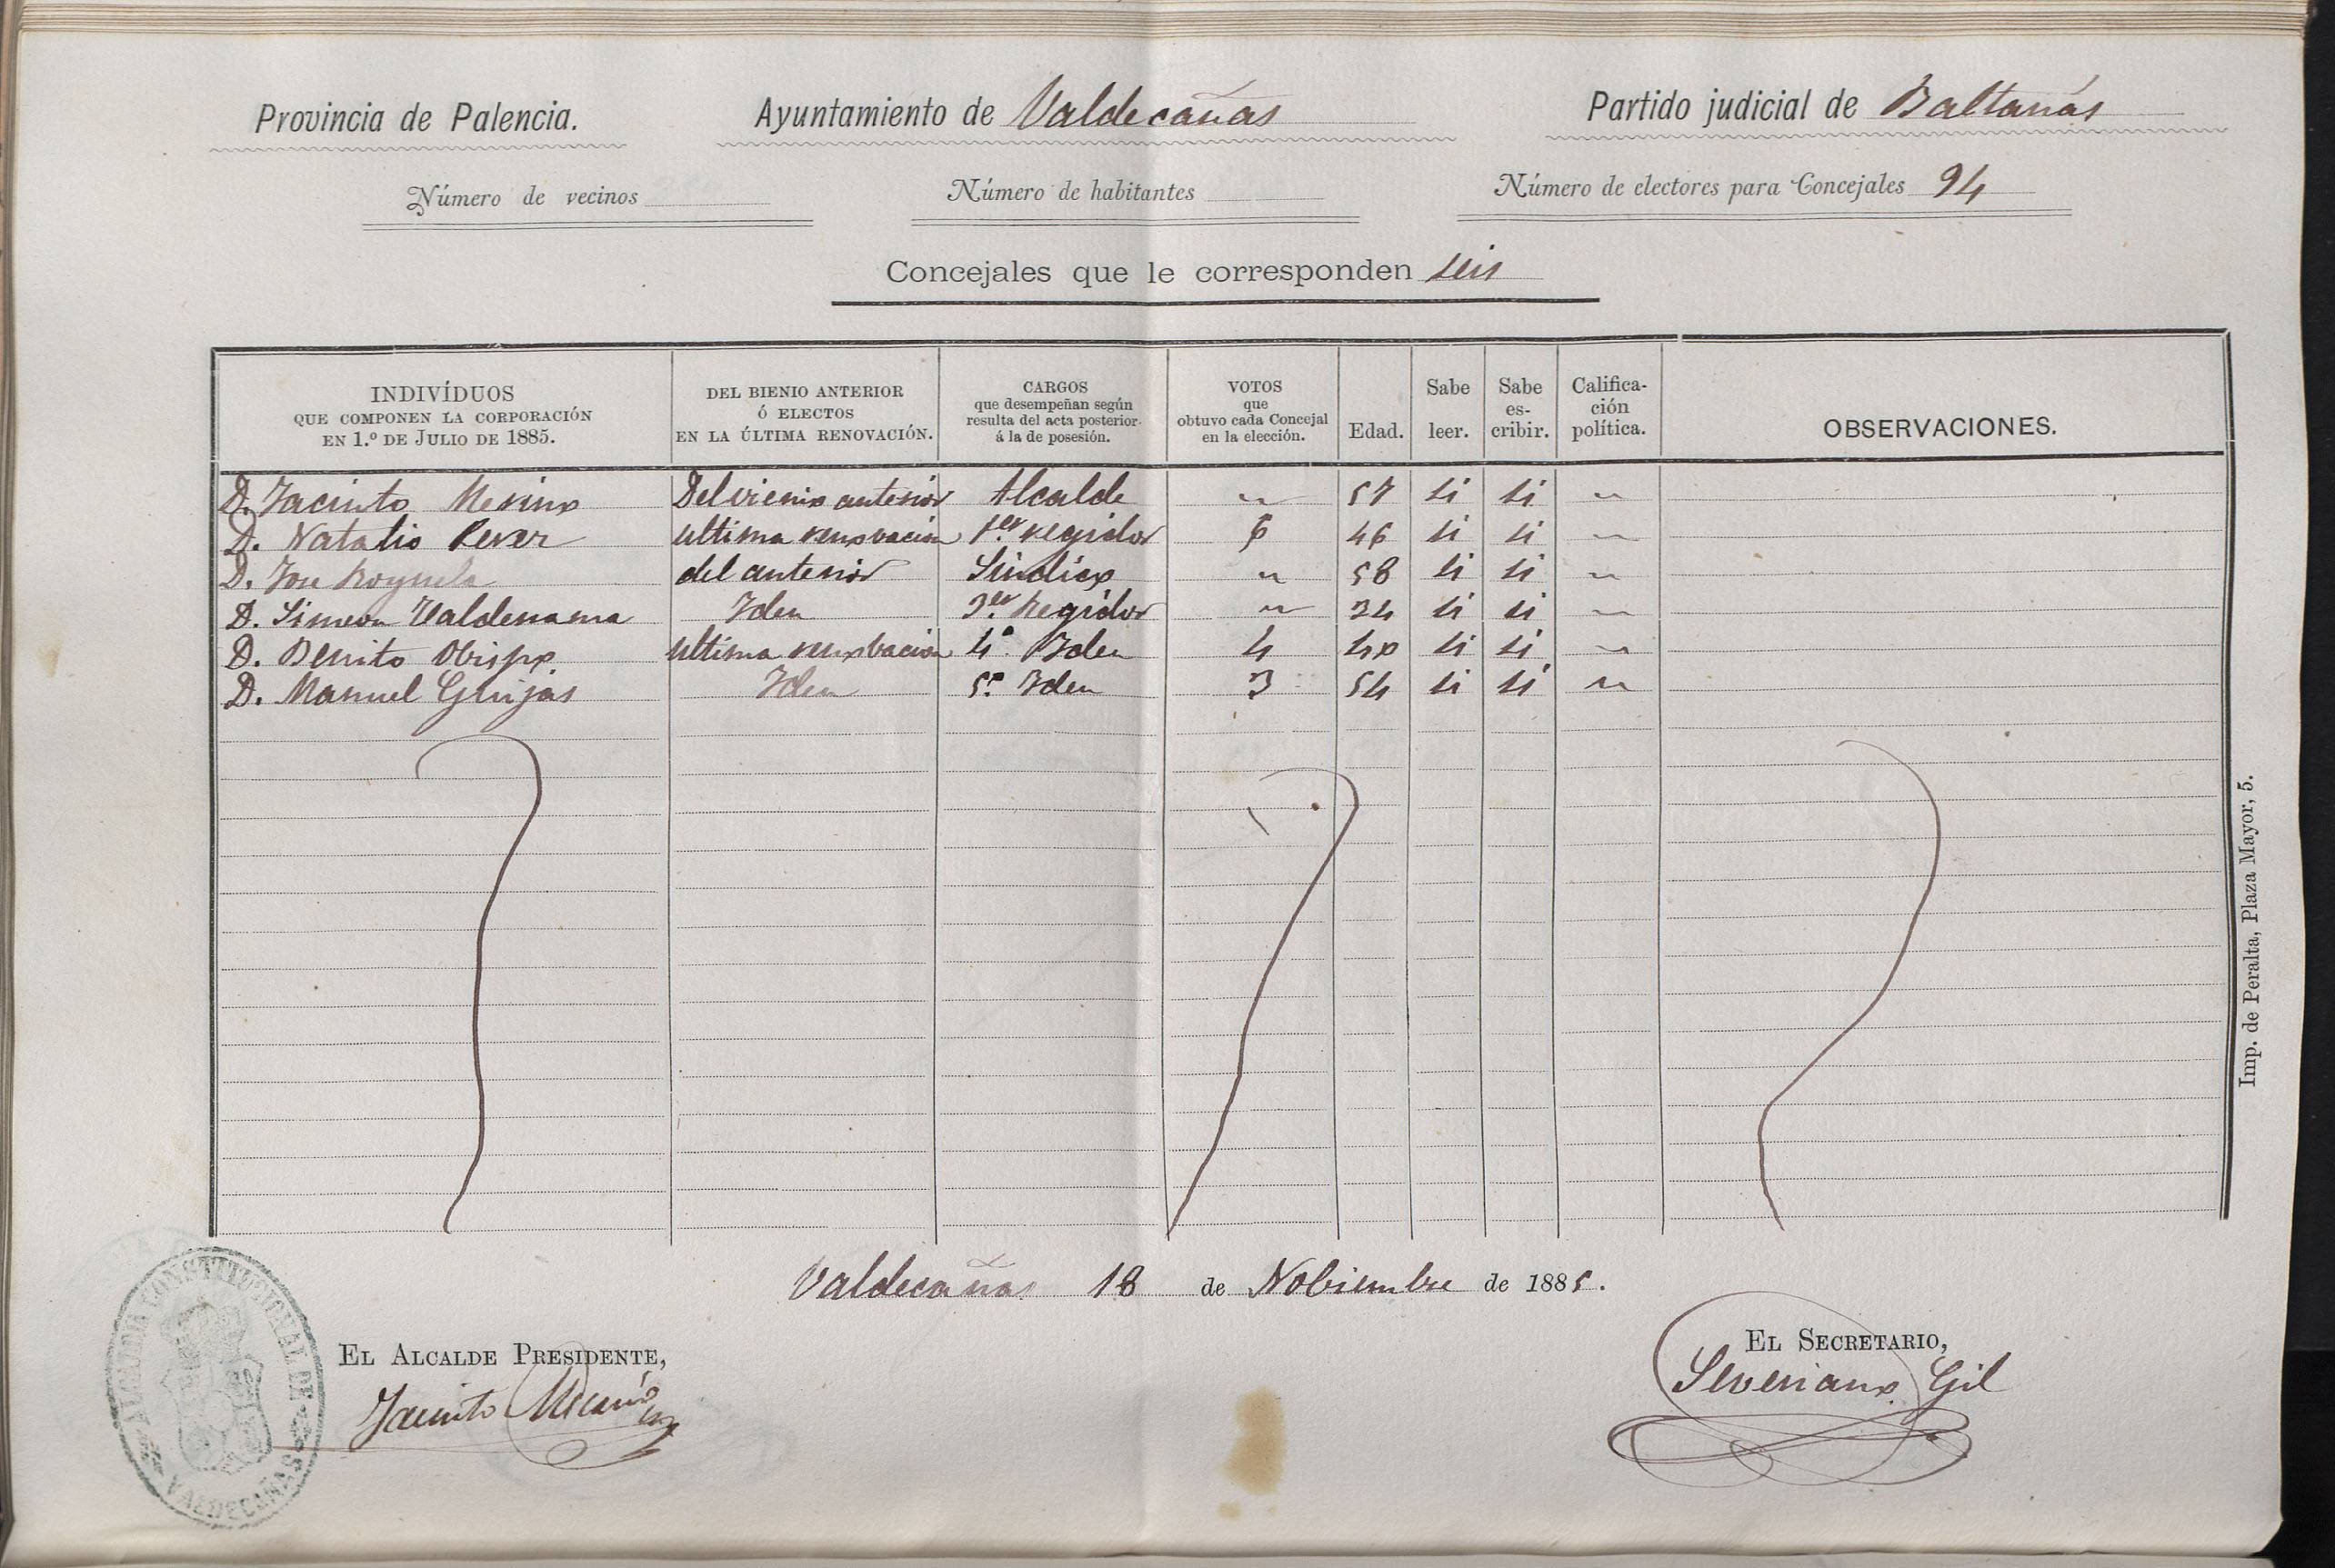 Provincia de Palencia. Ayuntamiento de Valdecañas Partido judicial de Baltanás
Número de vecinos Número de habitantes Número de electores para Concejales 94
Concejales que le corresponden seis
INDIVÍDUOS QUE COMPONEN LA CORPORACIÓN EN 1.º DE JULIO DE 1885.
DEL BIENIO ANTERIOR Ó ELECTOS EN LA ÚLTIMA RENOVACIÓN.
CARGOS que desempeñan según resulta del acta posterior á la de posesión.
VOTOS que obtuvo cada Concejal en la elección.
Edad.
Sabe leer.
Sabe es-cribir.
Califica-ción política.
OBSERVACIONES.
D. Jacinto Merino Del vienio anterior Alcalde " 57 si si "
D. Natalio ultima renovacion 1er regidor 6 46 si si "
D. Jose Royuela del anterior Sindico " 58 si si "
D. Simeon Valderrama Iden 3er Regidor " 34 si si "
D. Benito Obispo ultima renovacion 4º Iden 4 40 si si "
D. Manuel Grijas Iden 5º Iden 3 54 si si "
Imp. de Peralta, Plaza Mayor, 5.
Valdecañas 18 de Nobiembre de 1885.
EL ALCALDE PRESIDENTE,
Jacinto Merino
EL SECRETARIO,
Severiano Gil
ALCALDIA CONSTITUCIONAL DE VALDECAÑAS